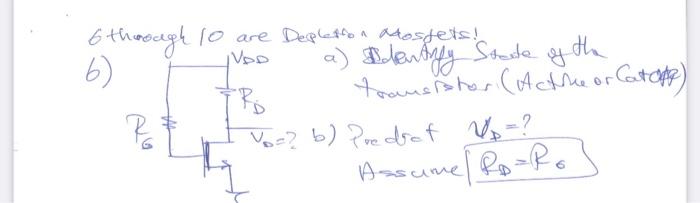 6 through 10 are Depletion Mosfets!
6)
VDD
a) Identify State of the
transistor. (Active or Cutoff)
RD
RG
VD=?
b) Predict VD=?
Assume RD=RG